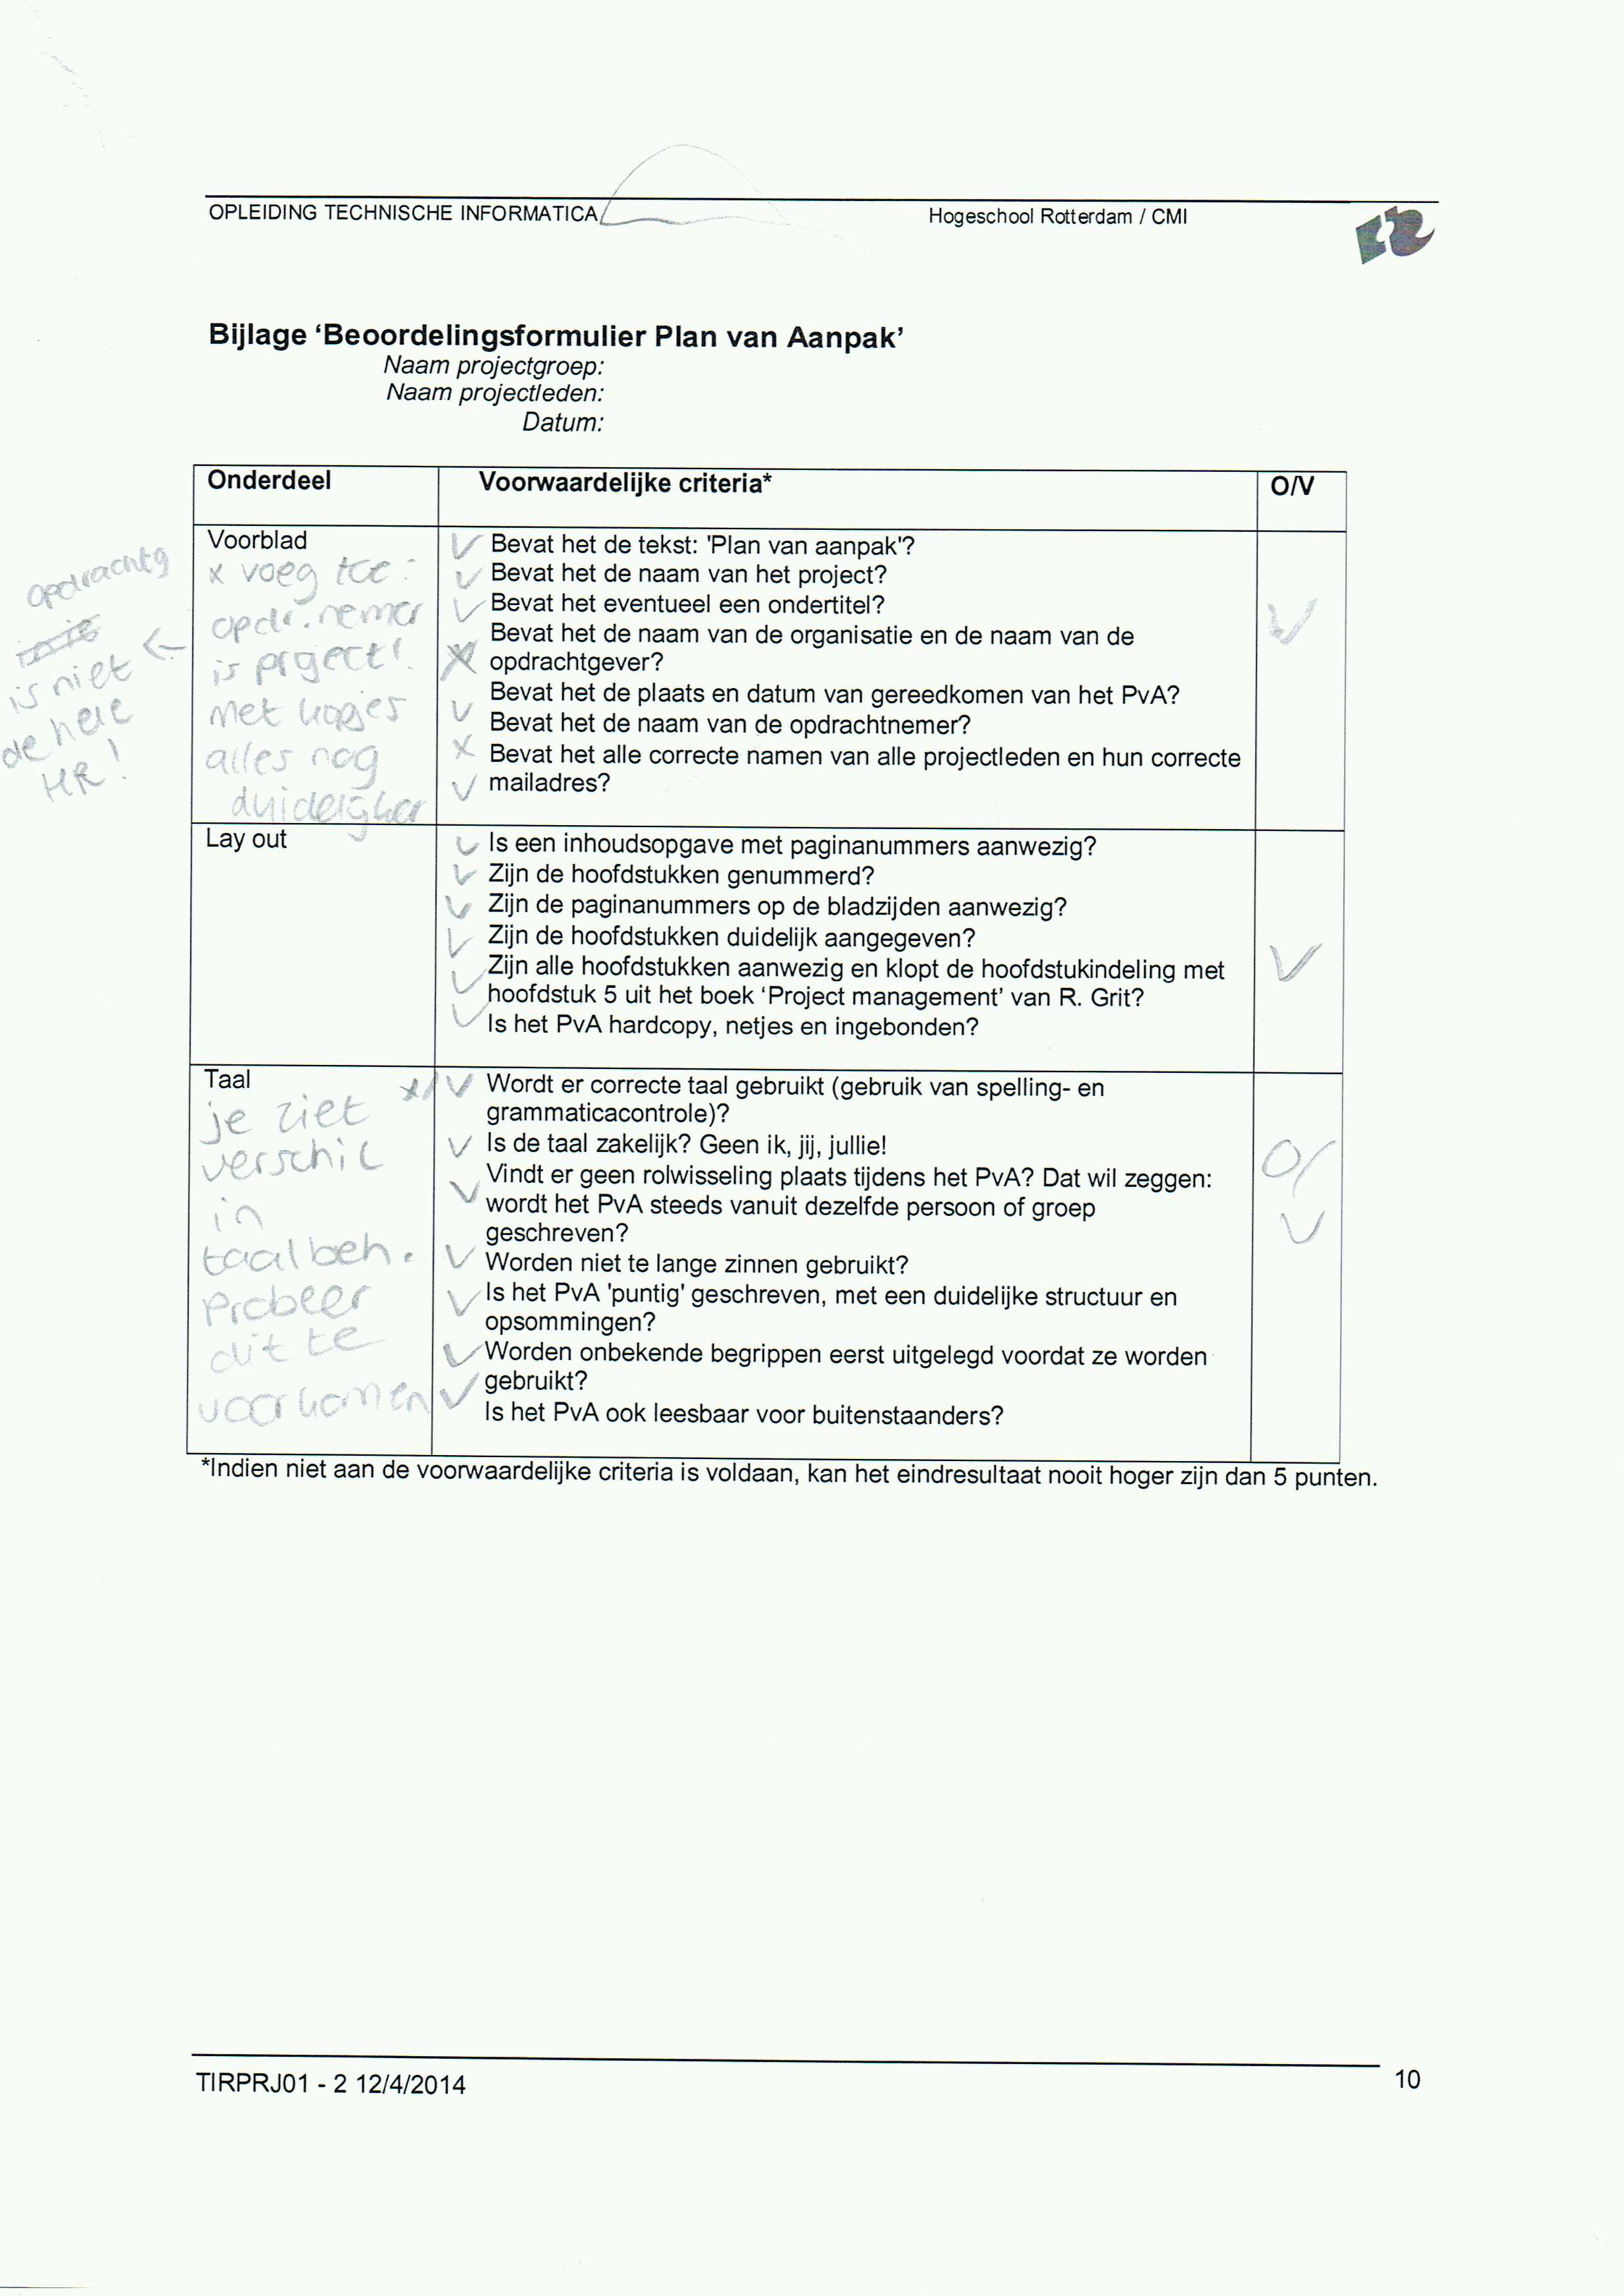 OPLEIDING TECHNISCHE INFORMATICA
Hogeschool Rotterdam / CMI
Bijlage ‘Beoordelingsformulier Plan van Aanpak’
Naam projectgroep:
Naam projectleden:
Datum:
Onderdeel
Voorwaardelijke criteria*
O/V
Voorblad
x voeg toe:
opdr. nemer
is project!
Met kopjes
alles nog
duidelijker
opdrachtg
is niet
de hele
HR!
V Bevat het de tekst: 'Plan van aanpak'?
V Bevat het de naam van het project?
V Bevat het eventueel een ondertitel?
Bevat het de naam van de organisatie en de naam van de
X opdrachtgever?
Bevat het de plaats en datum van gereedkomen van het PvA?
V Bevat het de naam van de opdrachtnemer?
X Bevat het alle correcte namen van alle projectleden en hun correcte
V mailadres?
V
Lay out
V Is een inhoudsopgave met paginanummers aanwezig?
V Zijn de hoofdstukken genummerd?
V Zijn de paginanummers op de bladzijden aanwezig?
V Zijn de hoofdstukken duidelijk aangegeven?
V Zijn alle hoofdstukken aanwezig en klopt de hoofdstukindeling met
hoofdstuk 5 uit het boek ‘Project management’ van R. Grit?
V Is het PvA hardcopy, netjes en ingebonden?
V
Taal
je ziet
verschil
in
taalbeh.
Probeer
dit te
voorkomen
x/V Wordt er correcte taal gebruikt (gebruik van spelling- en
grammaticacontrole)?
V Is de taal zakelijk? Geen ik, jij, jullie!
Vindt er geen rolwisseling plaats tijdens het PvA? Dat wil zeggen:
V wordt het PvA steeds vanuit dezelfde persoon of groep
geschreven?
V Worden niet te lange zinnen gebruikt?
V Is het PvA 'puntig' geschreven, met een duidelijke structuur en
opsommingen?
V Worden onbekende begrippen eerst uitgelegd voordat ze worden
V gebruikt?
Is het PvA ook leesbaar voor buitenstaanders?
O/
V
*Indien niet aan de voorwaardelijke criteria is voldaan, kan het eindresultaat nooit hoger zijn dan 5 punten.
TIRPRJ01 - 2 12/4/2014
10